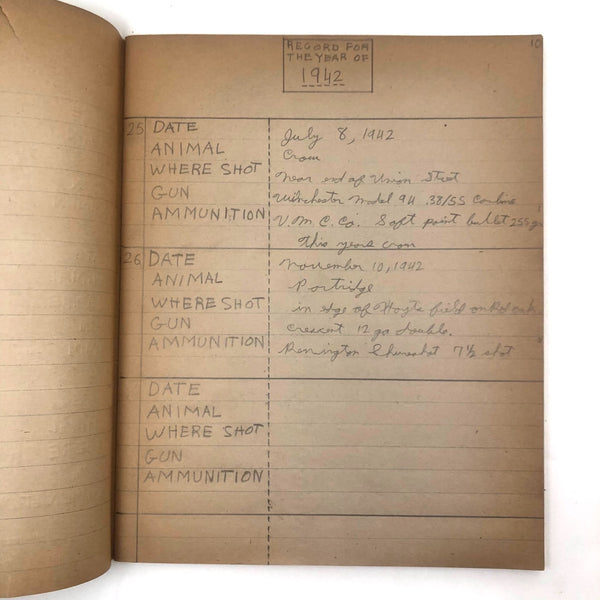 10
RECORD FOR
THE YEAR OF
1942
25 DATE July 8, 1942
ANIMAL Crow
WHERE SHOT Near end of Union Street
GUN Winchester Model 94 38/55 Carbine
AMMUNITION U.M.C. Co. Soft point bullet 255 gr
this years crow
26 DATE November 10, 1942
ANIMAL Partridge
WHERE SHOT in edge of Hoyts field on Red oak
GUN Crescent 12 ga double.
AMMUNITION Remington Shurshot 7½ shot
DATE
ANIMAL
WHERE SHOT
GUN
AMMUNITION